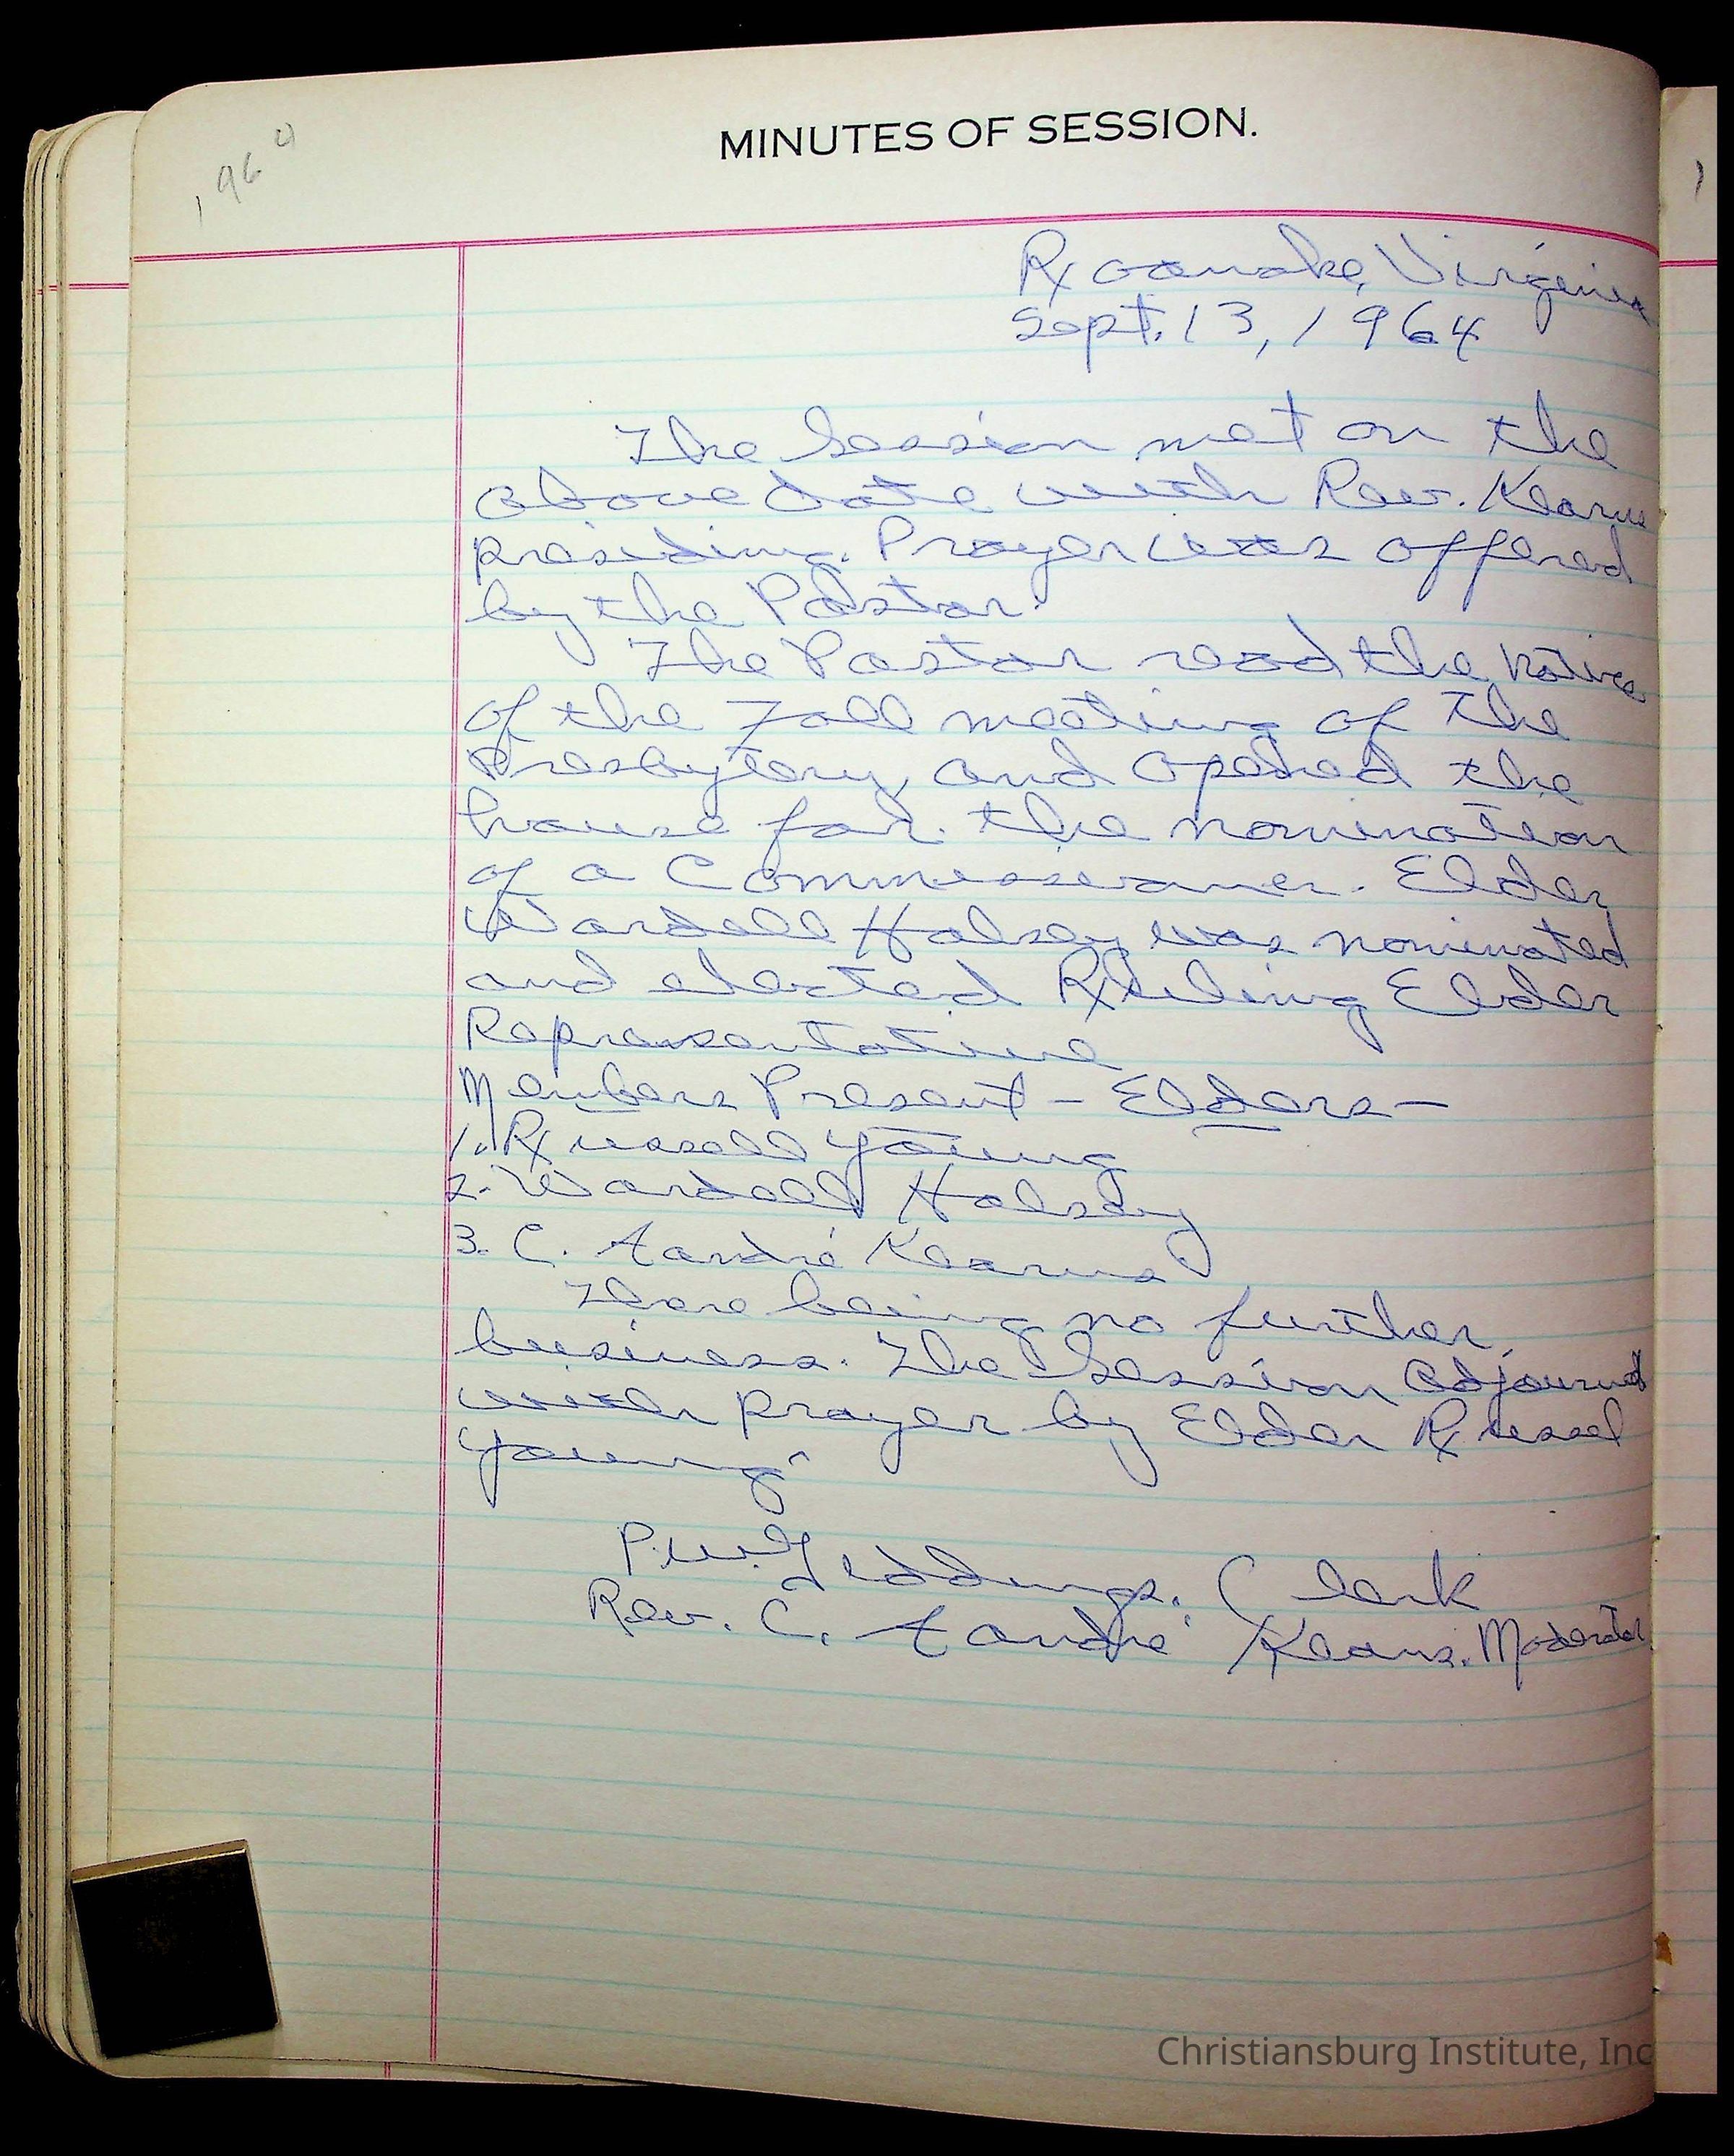 MINUTES OF SESSION.
1964
Roanoke, Virginia
Sept. 13, 1964
The Session met on the
above date with Rev. Kearns
presiding. Prayer was offered
by the Pastor.
The Pastor read the Notice
of the Fall meeting of the
Presbytery, and opened the
house for the nomination
of a Commissioner. Elder
Wardell Halsey was nominated
and elected Ruling Elder
Representative
Members Present - Elders -
1. Russell Young
2. Wardell Halsey
3. C. Tandré Kearns
There being no further
business. The Session adjournd
with prayer by Elder Russel
Young.
P.W. Giddings. Clerk
Rev. C. Tandré Kearns. Moderator
Christiansburg Institute, Inc